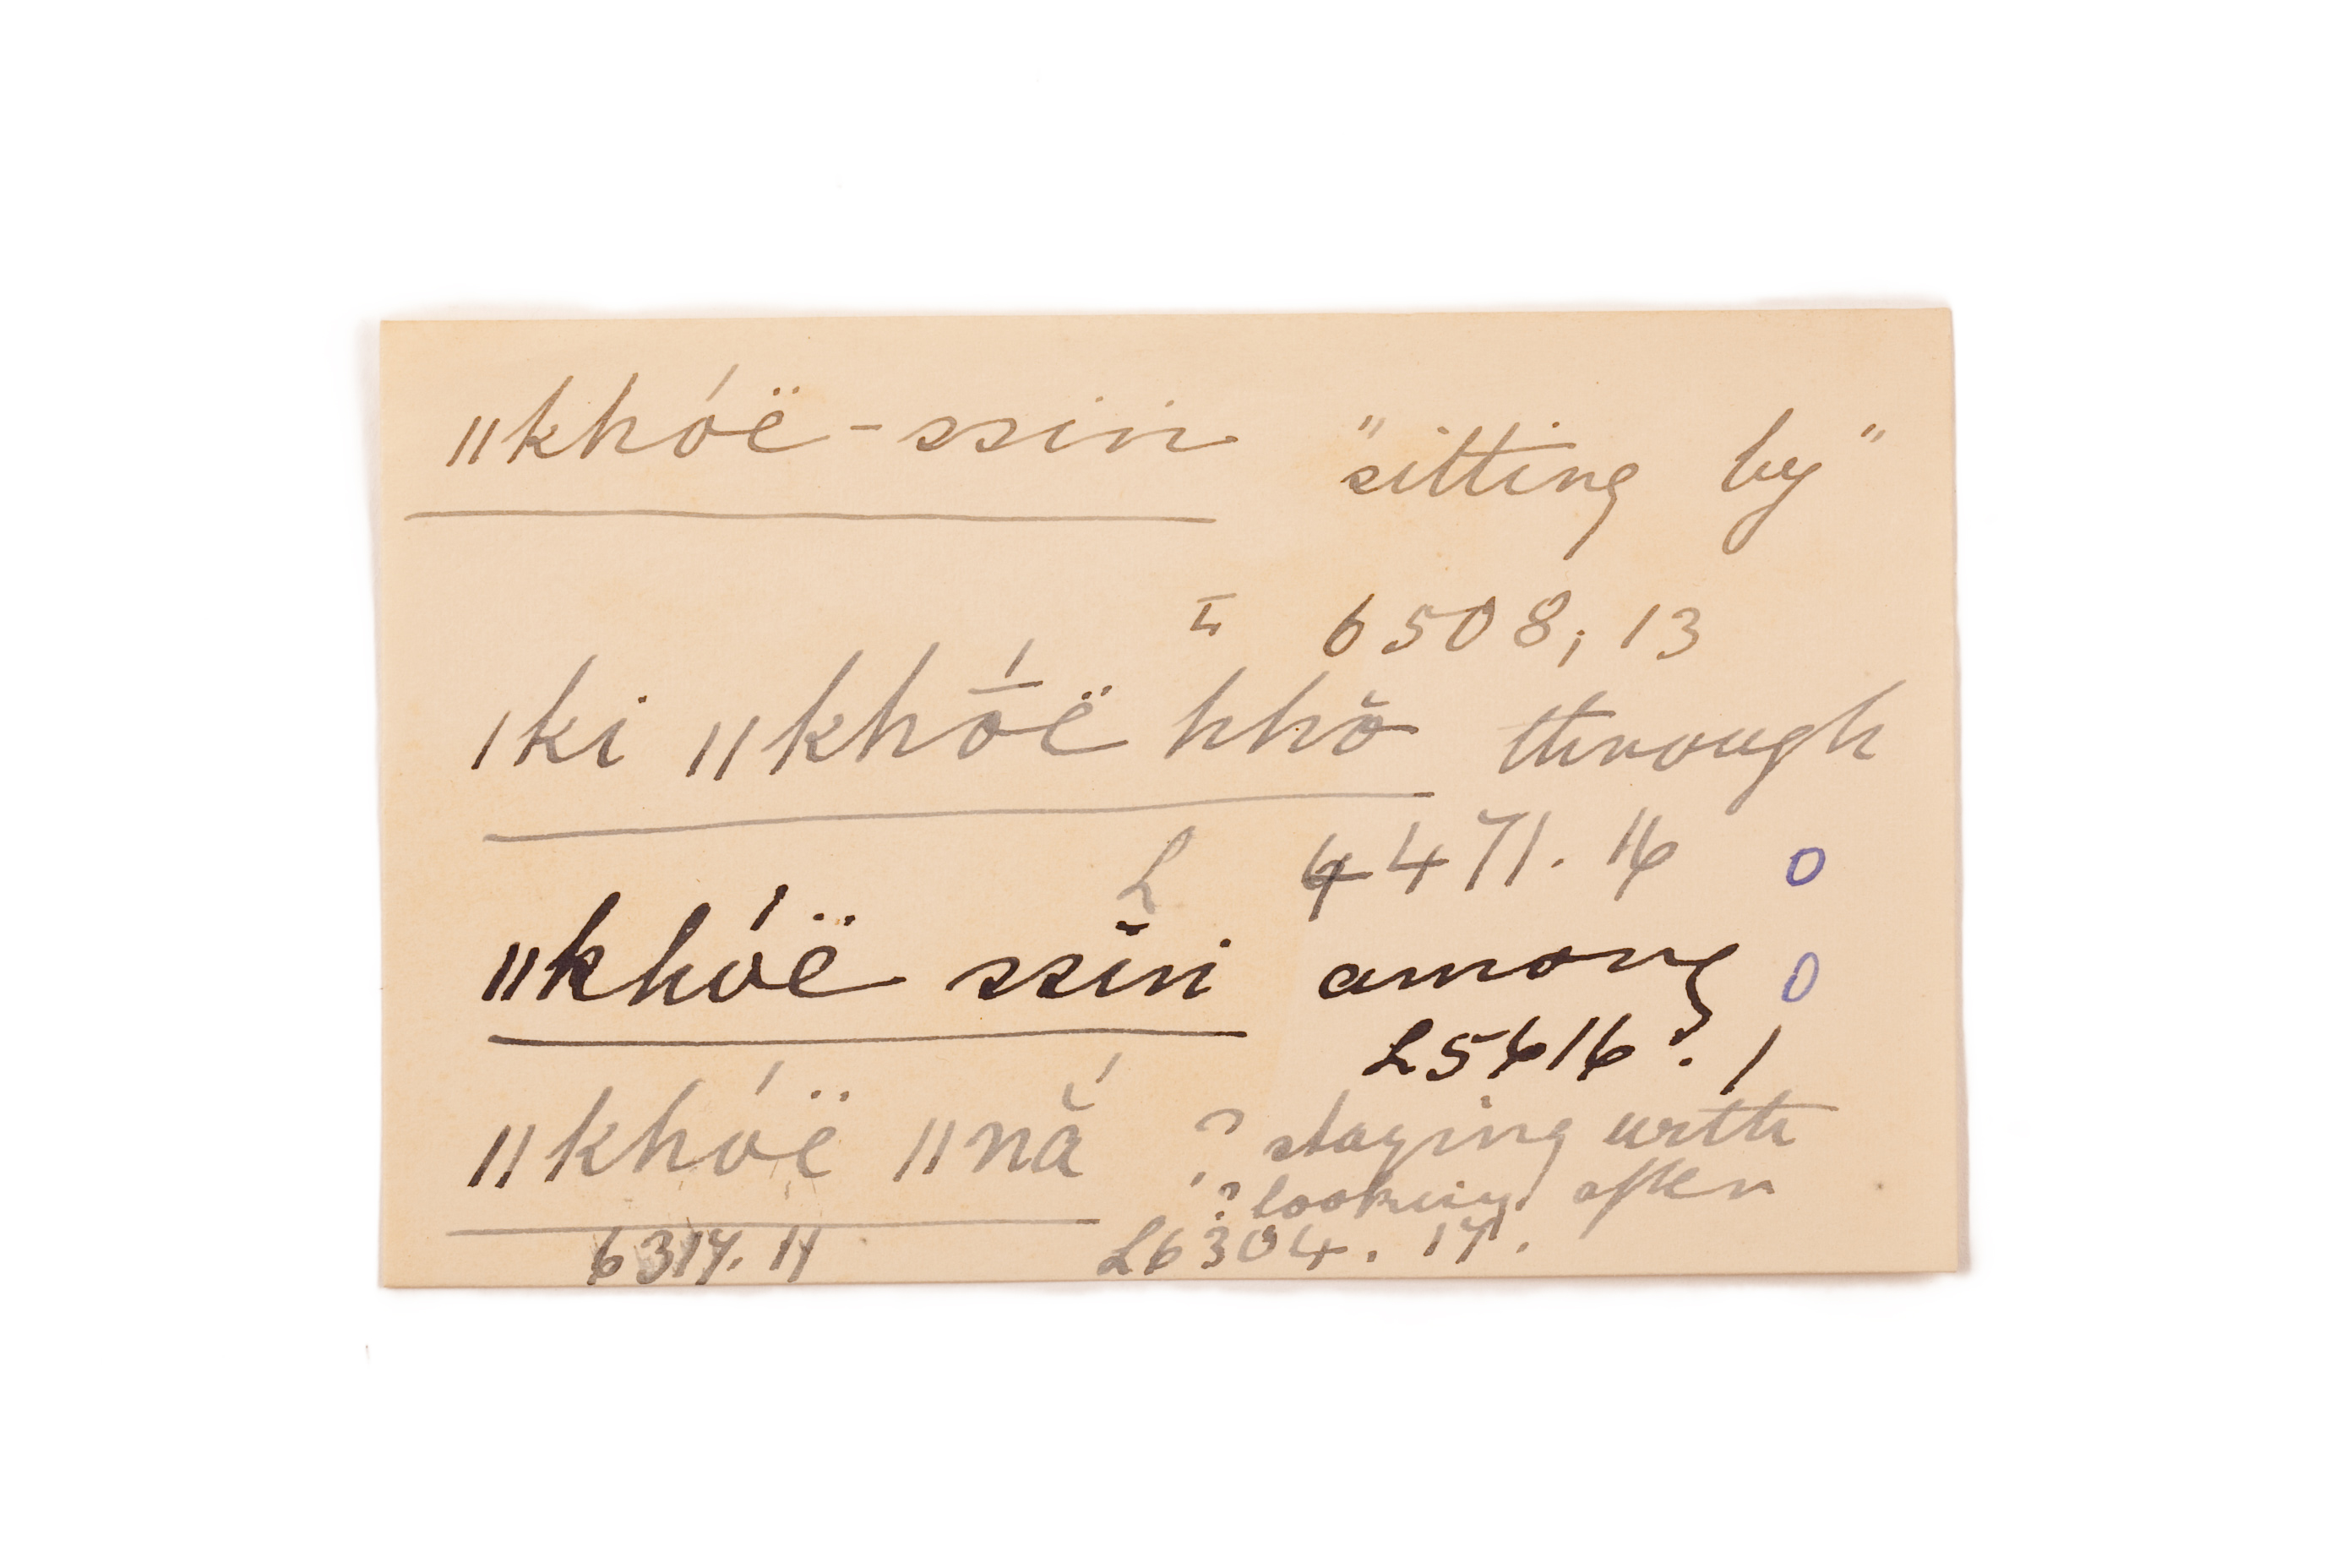 ǁkhóë-ssin "sitting by"
L 6508; 13
ǀki ǁkhṓë hhŏ through
L 4471. 16 0
ǁkhóë ssĭn among 0
L5616'. 1
ǁkhóë ǁnắ ? staying with
? looking after
6317. 11 L6304. 17'.